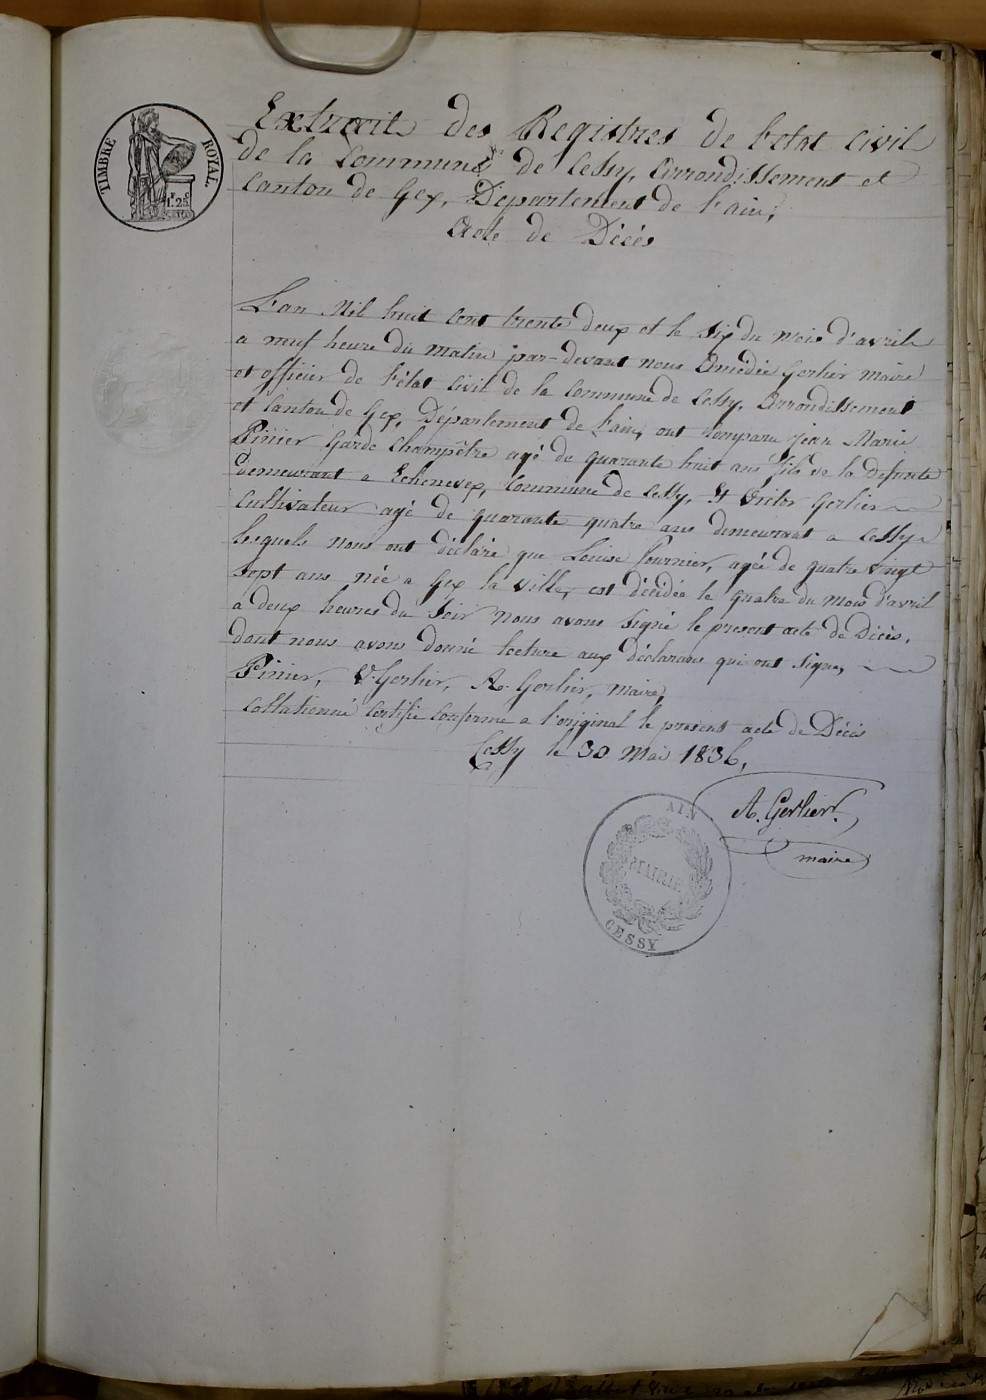 TIMBRE ROYAL.
1F. 25C
Extrait des Registres de l'etat Civil
de la Commune de Cessy, Arrondissement et
Canton de Gex, Département de l'ain,
Acte de Décés
L'an Mil huit Cent trente deux et le Six du mois d'avril
a neuf heure du matin par-devant nous Amédée Gerlier maire
et officier de l'état Civil de la Commune de Cessy, Arrondissement
et Canton de Gex, Département de l'ain, ont Comparu Jean Marie
Pinier Garde Champêtre agé de quarante huit ans fils de la defunte
demeurant a Echenevex, Commune de Cessy, Et Victor Gerlier
Cultivateur agé de quarante quatre ans demeurant a Cessy
lesquels nous ont déclaré que Louise fournier, agée de quatre vingt
Sept ans née a Gex la ville, est décédée le quatre du mois d'avril
a deux heures du Soir nous avons Signé le present acte de Décès,
dont nous avons donné lecture aux déclarans qui ont Signé,
Pinier, V. Gerlier, A. Gerlier, maire,
Collationné Certifié Conforme a l'original le present acte de Décès
Cessy le 30 Mai 1836,
A. Gerlier.
maire
AIN
MAIRIE
CESSY